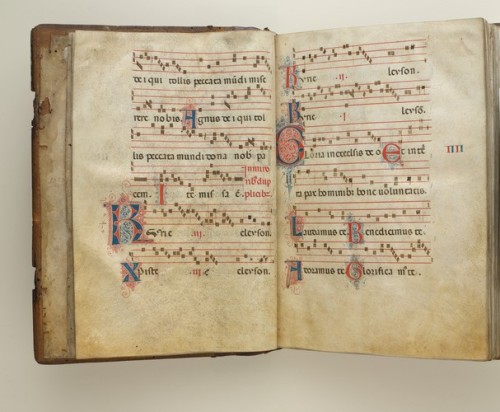 de i qui tollis peccata mūdi mise
rere nobis. Agnus de i qui tol
lis peccata mundi dona nob pa
cem. I te mis sa ē.
Kyrie .iii. eleyson.
Xpiste .iii. e eleyson.
Kyrie .ii. leyson.
Kyrie .i leysō.
Gloria in excelsis de o. Et in te
IIII
ra pax hominibz bone voluntatis.
Laudamus te. Benedicimus te.
Adoramus te. Glorifica m⁹ te.